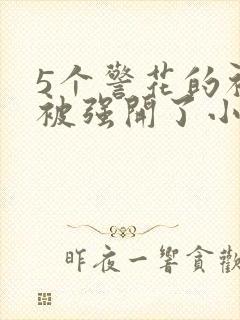 5个警花的
被强開了小
昨夜一響貪歡